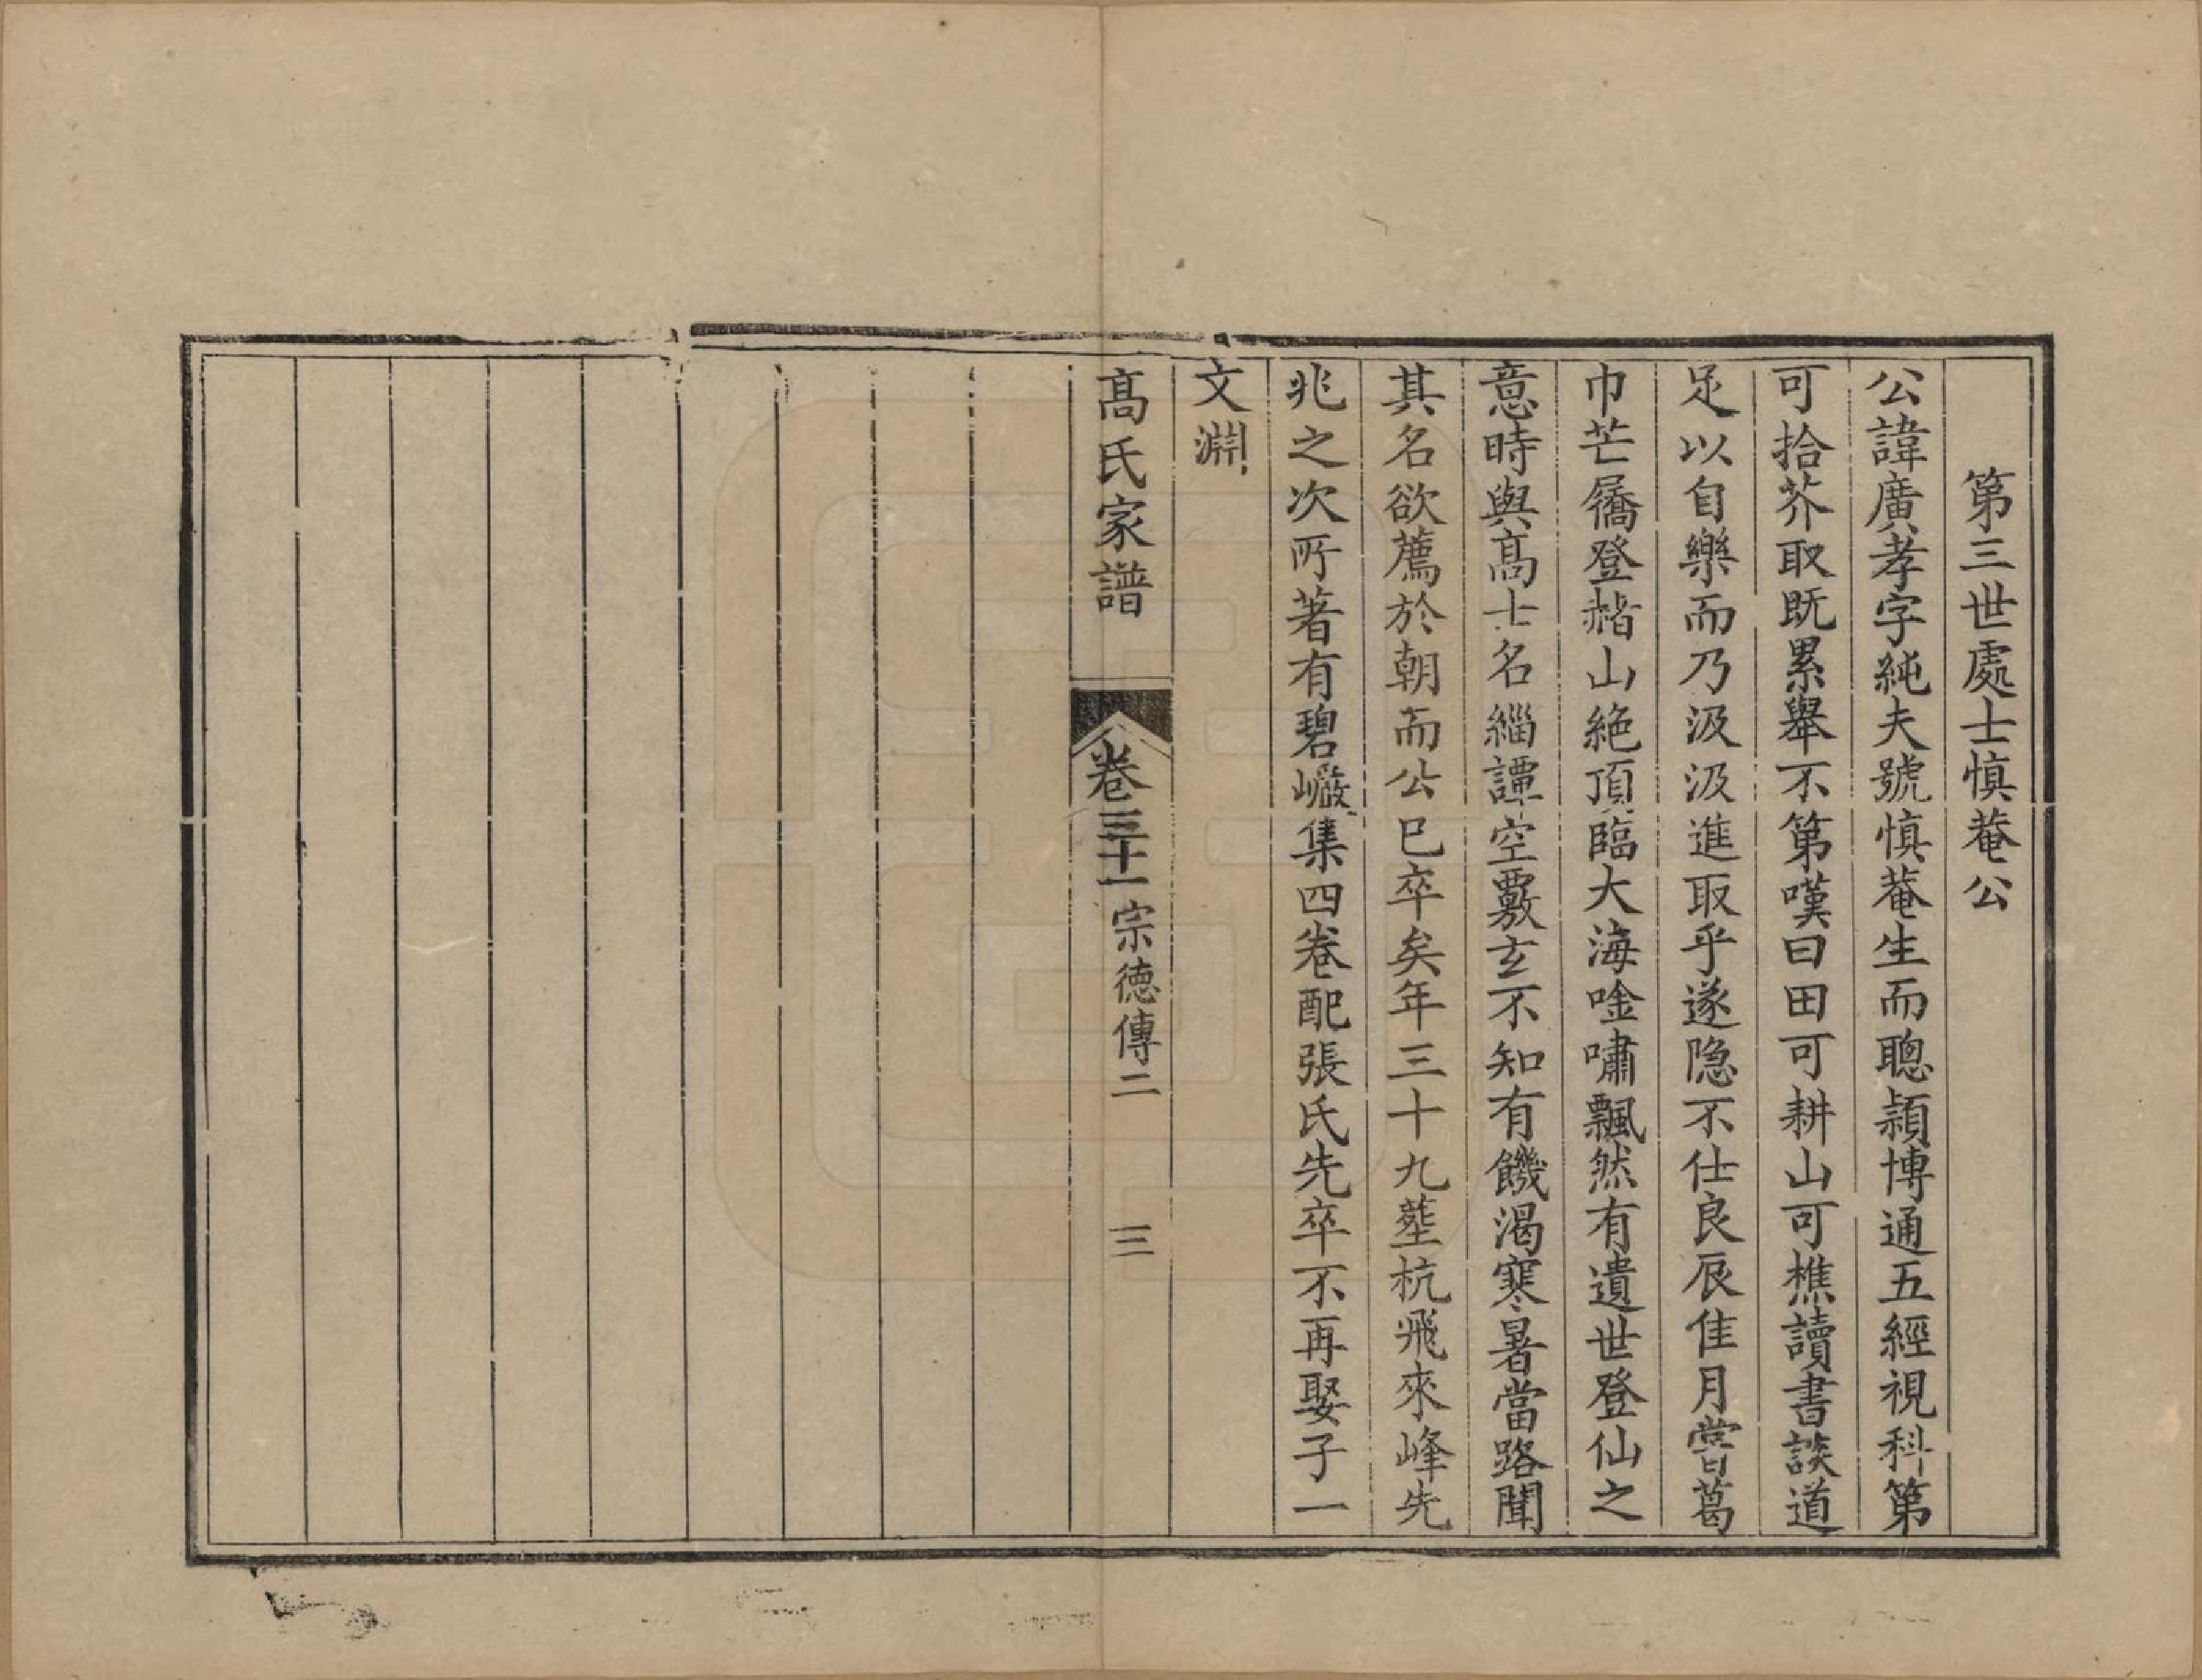 第三世處士慎菴公
公諱廣孝字純夫號慎菴生而聰頴博通五經視科第
可拾芥取既累舉不第嘆曰田可耕山可樵讀書談道
足以自樂而乃汲汲進取乎遂隐不仕良辰佳月嘗葛
巾芒屩登赭山絶頂臨大海唫嘯飄然有遺世登仙之
意時與髙士名緇譚空覈玄不知有饑渴寒暑當路聞
其名欲薦於朝而公已卒矣年三十九塟杭飛來峰先
兆之次所著有碧巗集四卷配張氏先卒不再娶子一
文淵
髙氏家譜
卷三十一宗德傳二
三